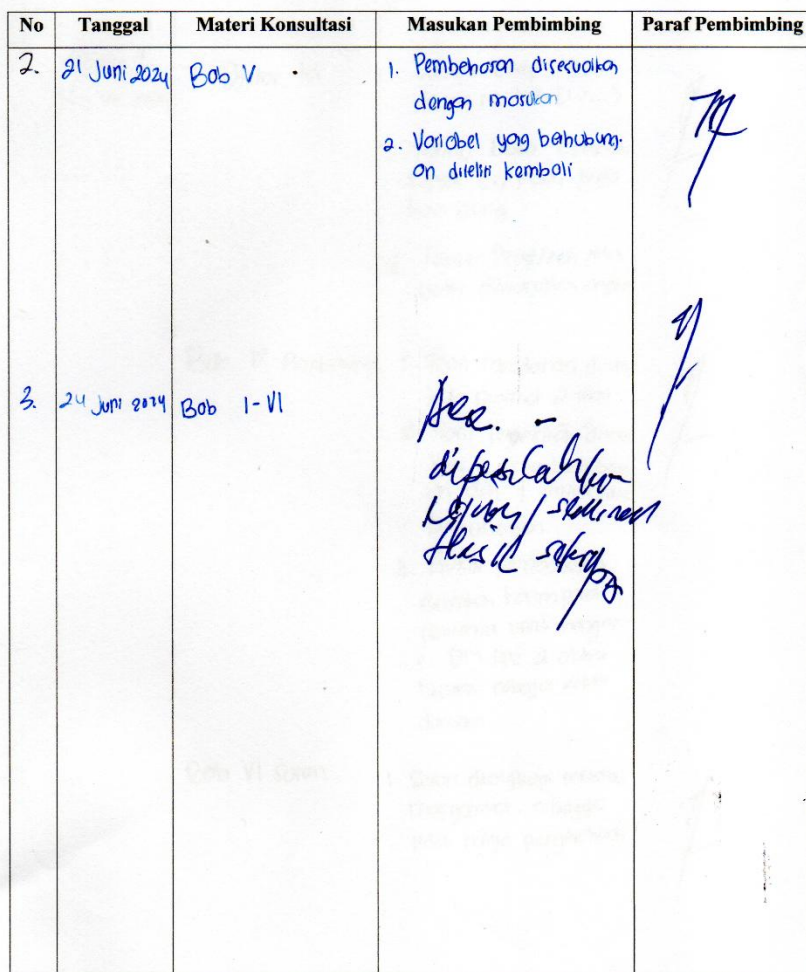 No Tanggal Materi Konsultasi Masukan Pembimbing Paraf Pembimbing
2. 21 Juni 2024 Bab V 1. Pembahasan disesuaikan
dengan masukan
2. Variabel yang berhubung-
an diteliti kembali
3. 24 Juni 2024 Bab I-VI Acc. -
dipersilahkan
/ seminar
Hasil